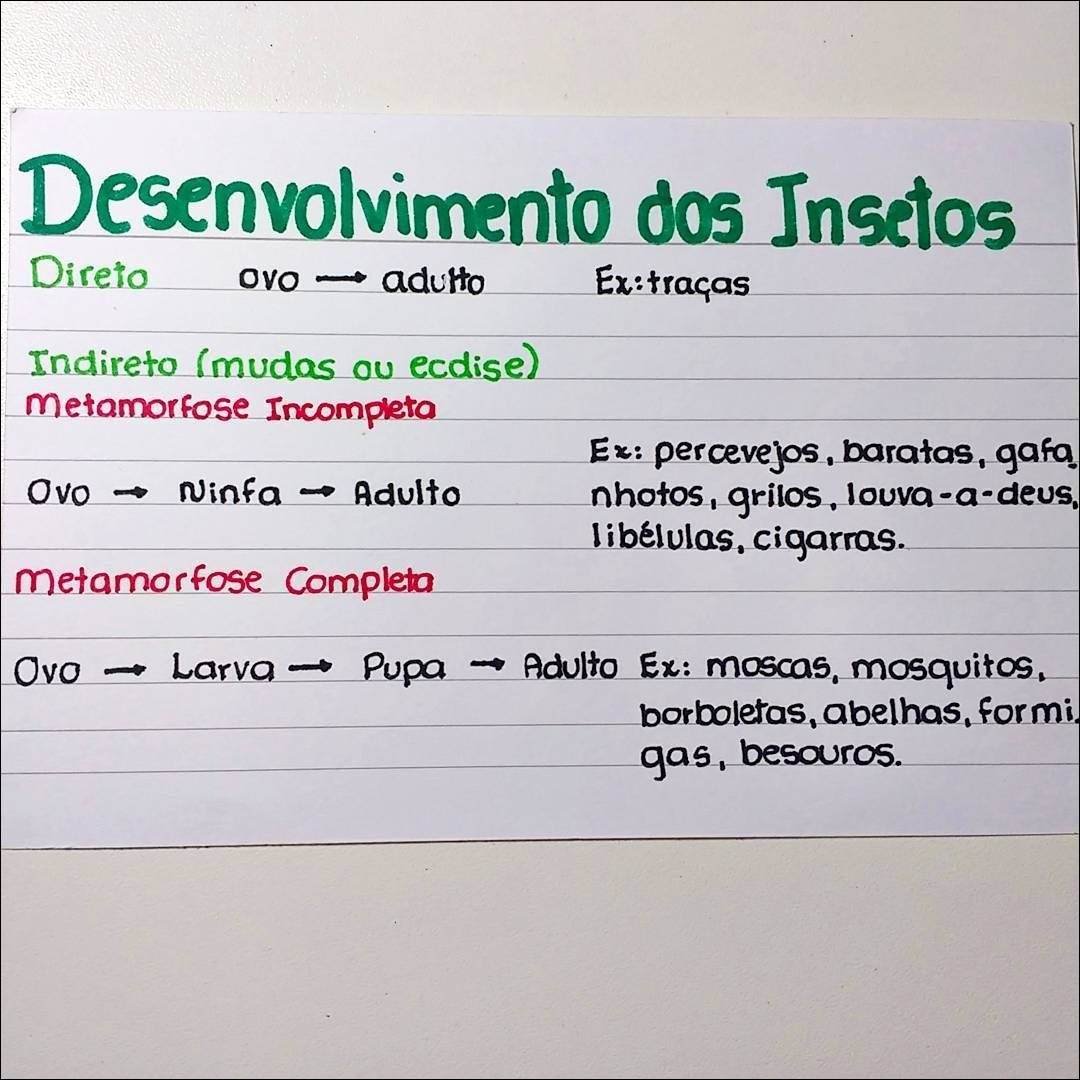 Desenvolvimento dos Insetos
Direto ovo → adulto Ex: traças
Indireto (mudas ou ecdise)
Metamorfose Incompleta
Ex: percevejos, baratas, gafa
Ovo → Ninfa → Adulto nhotos, grilos, louva-a-deus,
libélulas, cigarras.
Metamorfose Completa
Ovo → Larva → Pupa → Adulto Ex: moscas, mosquitos,
borboletas, abelhas, formi
gas, besouros.